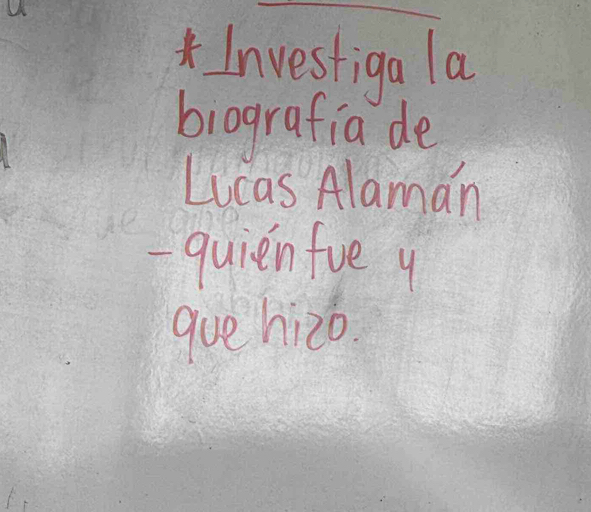 * Investiga la
biografía de
Lucas Alamán
- quién fue y
que hizo.